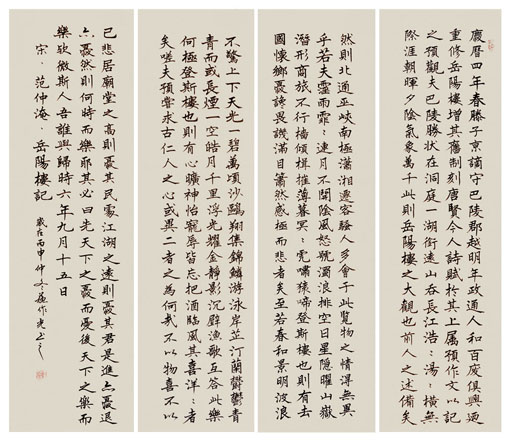 慶曆四年春滕子京謫守巴陵郡越明年政通人和百廢俱興迺
重修岳陽樓增其舊制刻唐賢今人詩賦於其上属預作文以記
之預觀夫巴陵勝狀在洞庭一湖銜遠山吞長江浩：湯：橫無
際涯朝暉夕陰氣象萬千此則岳陽樓之大觀也前人之述備矣
然則北通巫峽南極瀟湘遷客騷人多會于此覽物之情得無異
乎若夫霪雨霏：連月不開陰風怒號濁浪排空日星隱曜山嶽
潛形商旅不行檣傾楫摧薄暮冥：虎嘯猿啼登斯樓也則有去
國懷鄉憂讒畏譏滿目蕭然感極而悲者矣至若春和景明波浪
不驚上下天光一碧萬頃沙鷗翔集錦鱗游泳岸芷汀蘭鬱鬱青
青而或長煙一空皓月千里浮光耀金靜影沉璧漁歌互答此樂
何極登斯樓也則有心曠神怡寵辱皆忘把酒臨風其喜洋：者
矣嗟夫預嘗求古仁人之心或異二者之為何哉不以物喜不以
己悲居廟堂之高則憂其民處江湖之遠則憂其君是進亦憂退
亦憂然則何時而樂耶其必曰先天下之憂而憂後天下之樂而
樂歟微斯人吾誰與歸時六年九月十五日
宋·范仲淹·岳陽樓記 歲在丙申仲冬